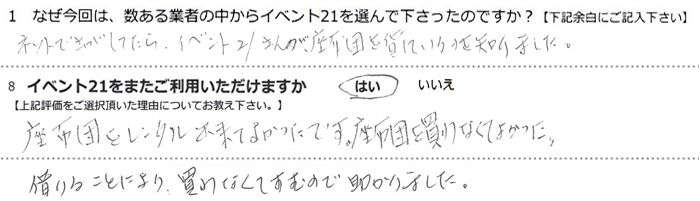 1 なぜ今回は、数ある業者の中からイベント21を選んで下さったのですか？【下記余白にご記入下さい】
ネットでさがしてたら、イベント21さんが座布団を貸ているのを知りました。
8 イベント21をまたご利用いただけますか はい いいえ
【上記評価をご選択頂いた理由についてお教え下さい。】
座布団をレンタル出来てよかったです。座布団を買わなくてよかった。
借りることにより、買わなくてすむので助かりました。